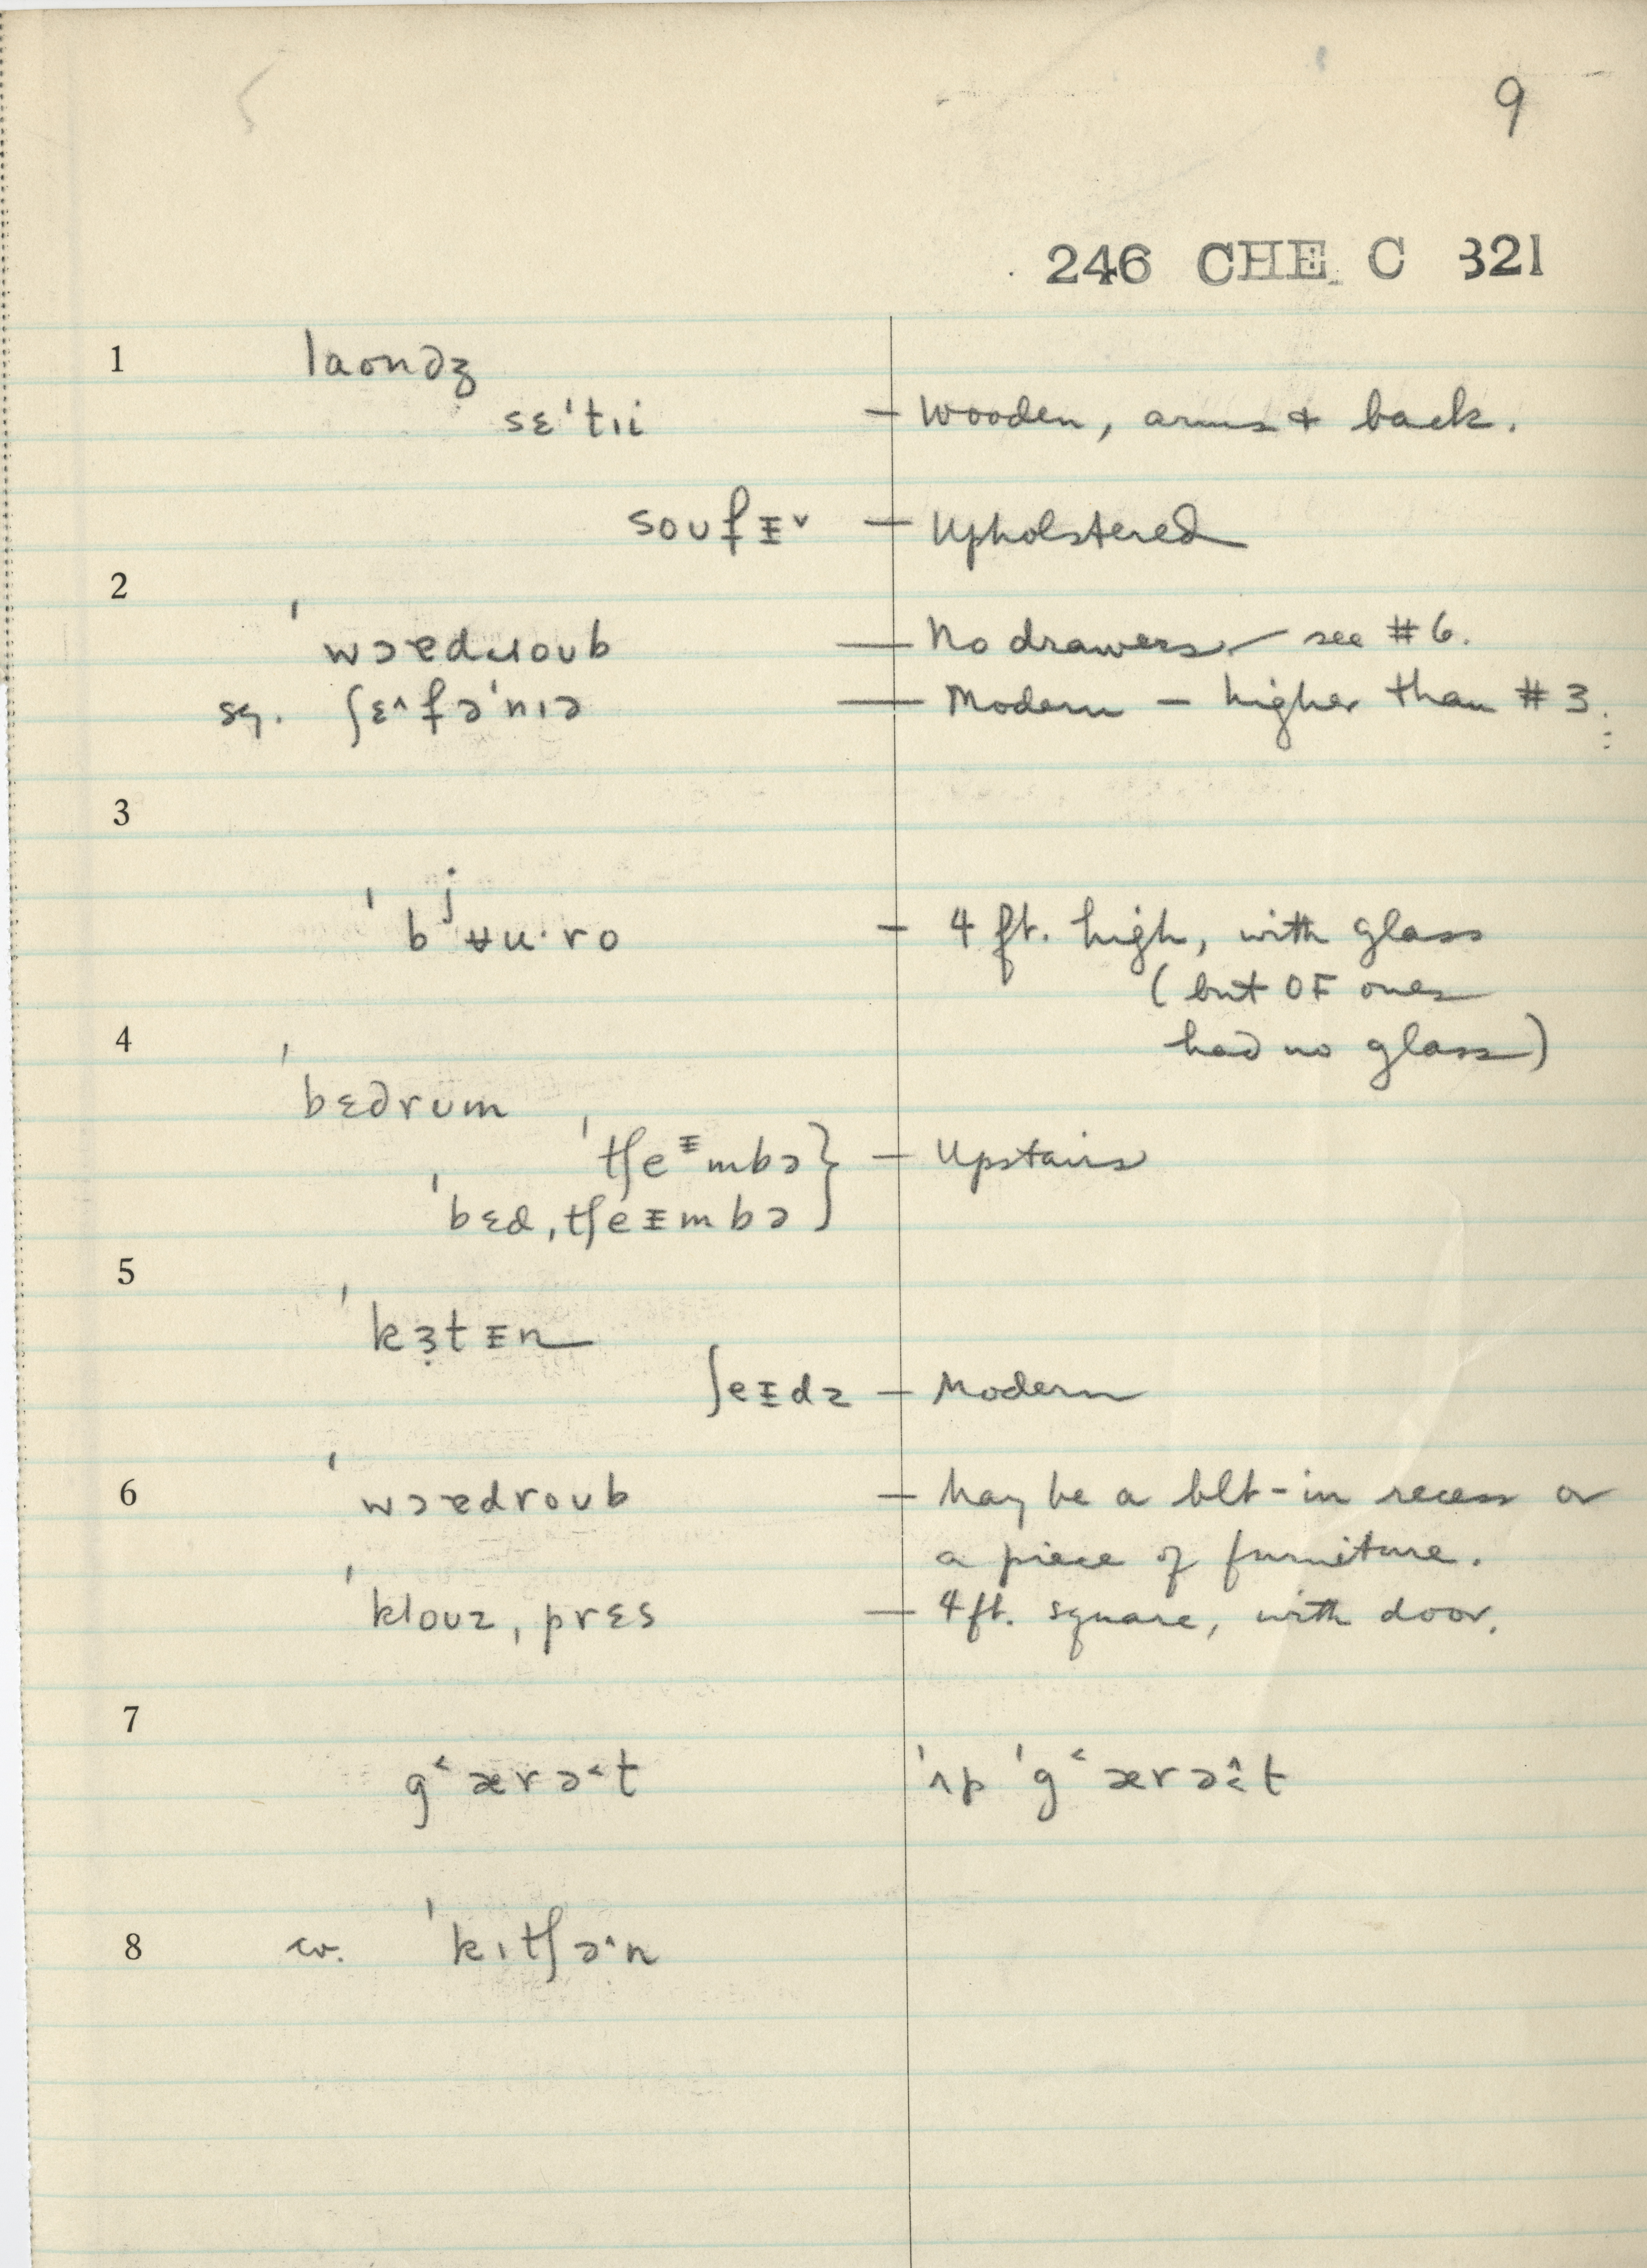 9
246 CHE C 321
1 laondʒ
sɛˈtɪi — Wooden, arms & back.
soʊfᵻ˅ — Upholstered
2
ˈwɔɐdɹoʊb — No drawers — see #6.
sq. ʃɛ˄fəˈnɪə — Modern — higher than #3.
3
ˈbʲʉu·ro — 4 ft. high, with glass
(but OF ones
4 had no glass)
ˈbɛdrʊm
ˈtʃeᵻmbə } — Upstairs
ˈbɛd,tʃeᵻmbə }
5
ˈkɜ̣tᵻn
ʃeᵻdz — Modern
6 ˈwɔɐdroʊb — May be a blt-in recess or
a piece of furniture.
ˈkloʊz, prɛs — 4 ft. square, with door.
7
g˂ærə˂t ˈʌp ˈg˂ærə˂̂t
8 cv. ˈkɪtʃə˄n